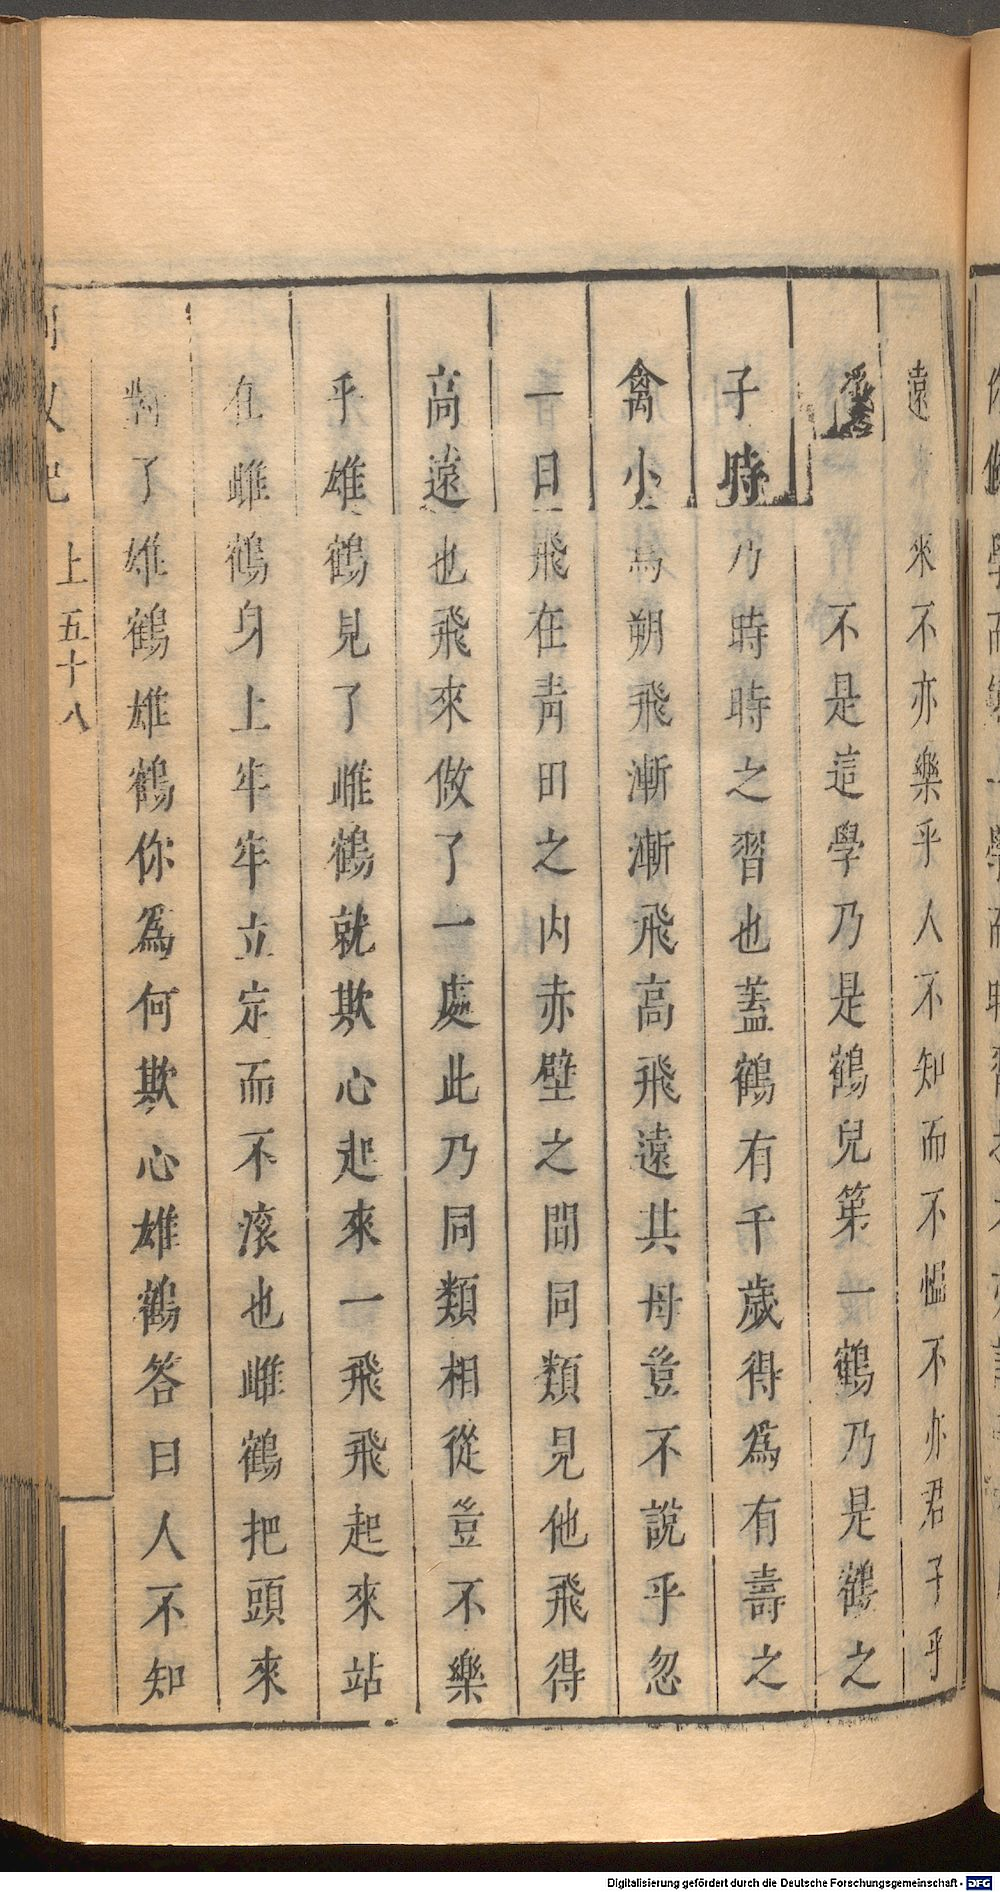 遠來不亦樂乎人不知而不慍不亦君子乎
不是這學乃是鶴兒第一鶴乃是鶴之
子時乃時時之習也蓋鶴有千歲得為有壽之
禽小鳥朔飛漸漸飛高飛遠其母豈不說乎忽
一日飛在青田之內赤壁之間同類見他飛得
高遠也飛來做了一處此乃同類相從豈不樂
乎雄鶴見了雌鶴就欺心起來一飛飛起來站
在雌鶴身上牢牢立定而不滚也雌鶴把頭來
對了雄鶴雄鶴你為何欺心雄鶴答曰人不知
上五十八
Digitalisierung gefördert durch die Deutsche Forschungsgemeinschaft - DFG